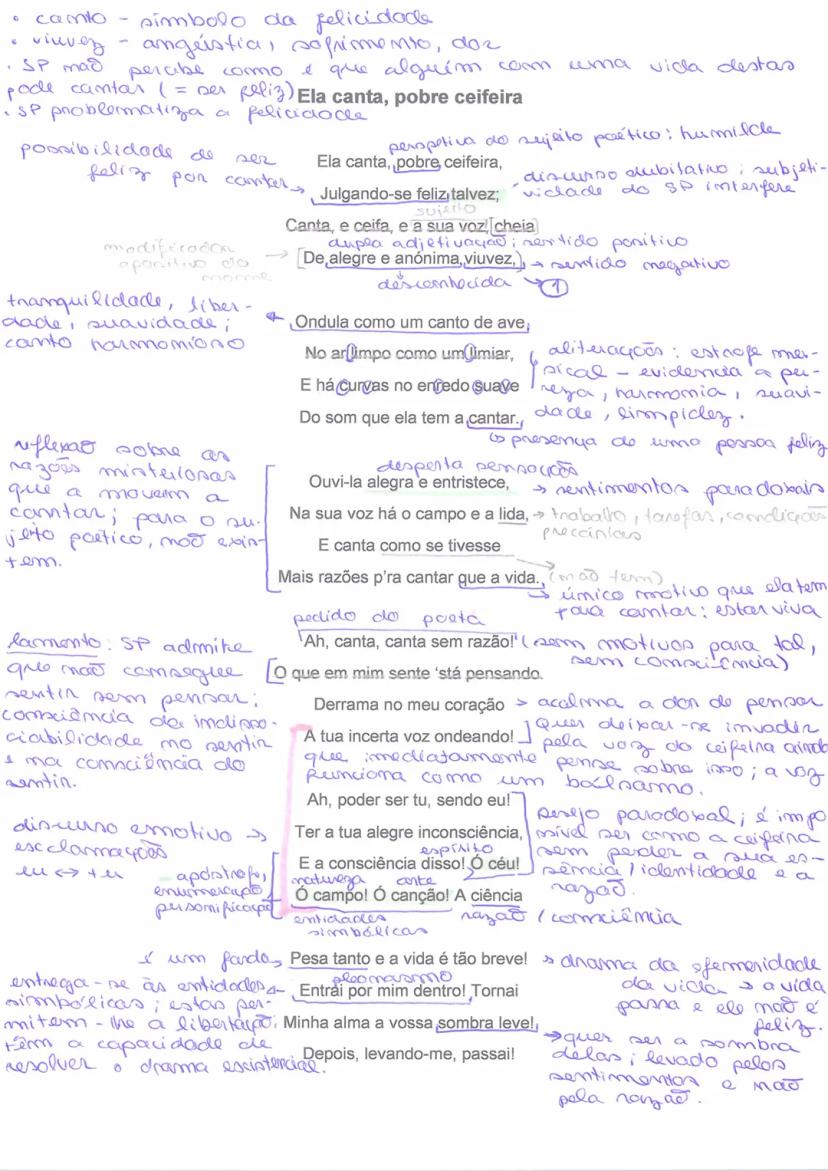 • canto - símbolo da felicidade
• viuvez - angústia, sofrimento, dor
• SP não percebe como é que alguém com uma vida destas
pode cantar (= ser feliz)
Ela canta, pobre ceifeira
• SP problematiza a felicidade
perspetiva do sujeito poético: humilde
possibilidade de ser
feliz por cantar
Ela canta, pobre ceifeira,
discurso dubitativo; subjeti-
Julgando-se feliz talvez;
vidade do SP interfere
sujeito
Canta, e ceifa, e a sua voz, [cheia
dupla adjetivação; sentido positivo
modificador
apositivo do
nome
[De alegre e anónima viuvez,] → sentido negativo
desconhecida → 1
tranquilidade, liber-
dade, suavidade;
canto harmonioso
Ondula como um canto de ave,
No ar limpo como um limiar,
aliterações: estrofe mu-
sical - evidencia a pu-
E há curvas no enredo suave
reza, harmonia, suavi-
Do som que ela tem a cantar.
dade, limpidez.
↳ presença de uma pessoa feliz
reflexão sobre as
razões misteriosas
que a movem a
cantar; para o su-
jeito poético, não exis-
tem.
desperta sensações
Ouvi-la alegra e entristece,
→ sentimentos paradoxais
Na sua voz há o campo e a lida,
→ trabalho, tarefas, condições
precárias
E canta como se tivesse
Mais razões p'ra cantar que a vida.
(não tem)
→ único motivo que ela tem
para cantar: estar viva
pedido do poeta
Ah, canta, canta sem razão!
(sem motivos para tal,
sem consciência)
lamento: SP admite
que não consegue
sentir sem pensar;
consciência da indisso-
ciabilidade no sentir
e na consciência do
sentir.
[O que em mim sente 'stá pensando.
Derrama no meu coração
> acalma a dor de pensar
A tua incerta voz ondeando!
] Quer deixar-se invadir
pela voz da ceifeira ainda
que imediatamente pense sobre isso; a voz
funciona como um bálsamo.
Ah, poder ser tu, sendo eu!
Desejo paradoxal; é impo
Ter a tua alegre inconsciência,
ssível ser como a ceifeira
sem perder a sua es-
sência/identidade e a
razão.
discurso emotivo →
exclamações
eu ↔ tu
espírito
E a consciência disso! Ó céu!
apóstrofe,
enumeração,
personificação
natureza arte
Ó campo! Ó canção! A ciência
entidades
simbólicas
razão / consciência
é um fardo
Pesa tanto e a vida é tão breve!
→ drama da efemeridade
da vida → a vida
passa e ele não é
feliz.
pleonasmo
entrega-se às entidades
simbólicas; estas per-
mitem-lhe a libertação;
têm a capacidade de
resolver o drama existencial.
Entrai por mim dentro! Tornai
Minha alma a vossa sombra leve!
→ quer ser a sombra
delas; levado pelos
sentimentos e não
pela razão.
Depois, levando-me, passai!